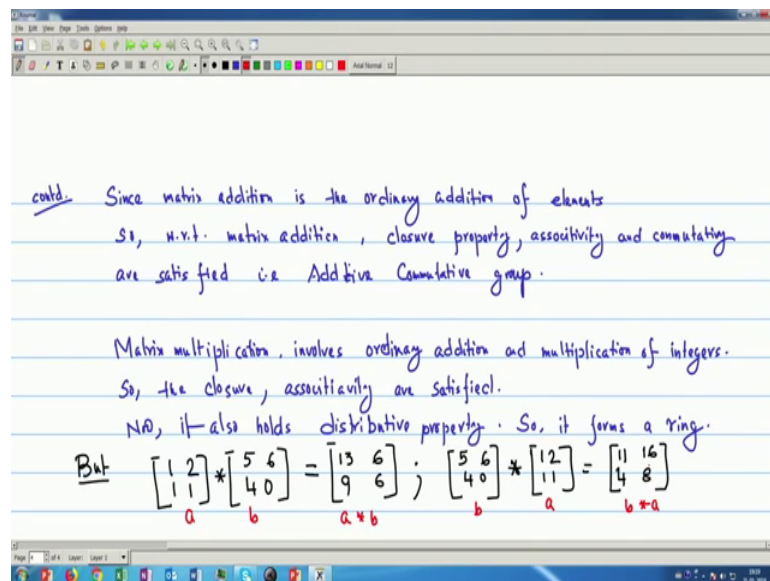 Journal
File Edit View Page Tools Options Help
Arial Normal 12
contd. Since matrix addition is the ordinary addition of elements
So, w.r.t. matrix addition, closure property, associtivity and commutativy
are satisfied i.e Additive Commutative group.
Matrix multiplication, involves ordinary addition and multiplication of integers.
So, the closure, associtiavity are satisfied.
it also holds distributive property. So, it forms a ring.
But [1 2 * [5 6 = [13 6 ; [5 6 * [1 2 = [11 16
1 1] 4 0] 9 6] 4 0] 1 1] 4 8]
a b a * b b a b * a
Page 4 of 4 Layer: Layer 1